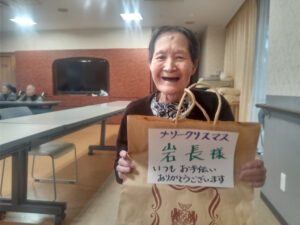 メリークリスマス
岩長様
いつもお手伝い
ありがとうございます